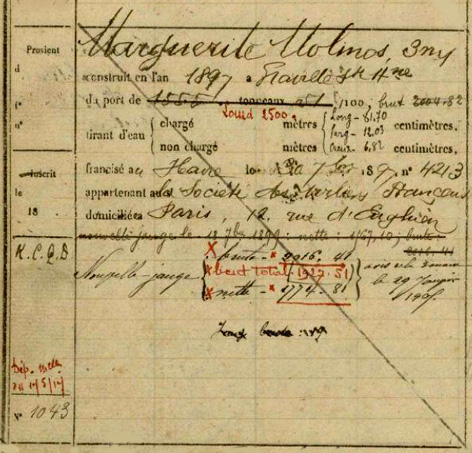 Marguerite Molinos, 3m
Provient
d
construit en l'an 1897 a Graville Ste Hne
du port de 1555 tonneaux 51/100, brut 2004.82
Lourd 2500.
n°
tirant d'eau { chargé mètres { Long - 81.70 centimètres.
larg - 12.03
non chargé mètres creux - 6.82 centimètres.
francisé au Havre le 7 189 n° 4213
inscrit
le
appartenant à la Société des Voiliers Français
18
domiciliée à Paris, 12, rue d'Enghien
nouvelle jauge le 18 1899 : nette : 1767,10 ; brute
K.C.Q.B
x brute - x 2016. 41
Nouvelle jauge x brut total - 1922. 51
le 29 Janvier
x nette - x 1774 - 81
1905
Dép.
du 11/5/17
N° 1043